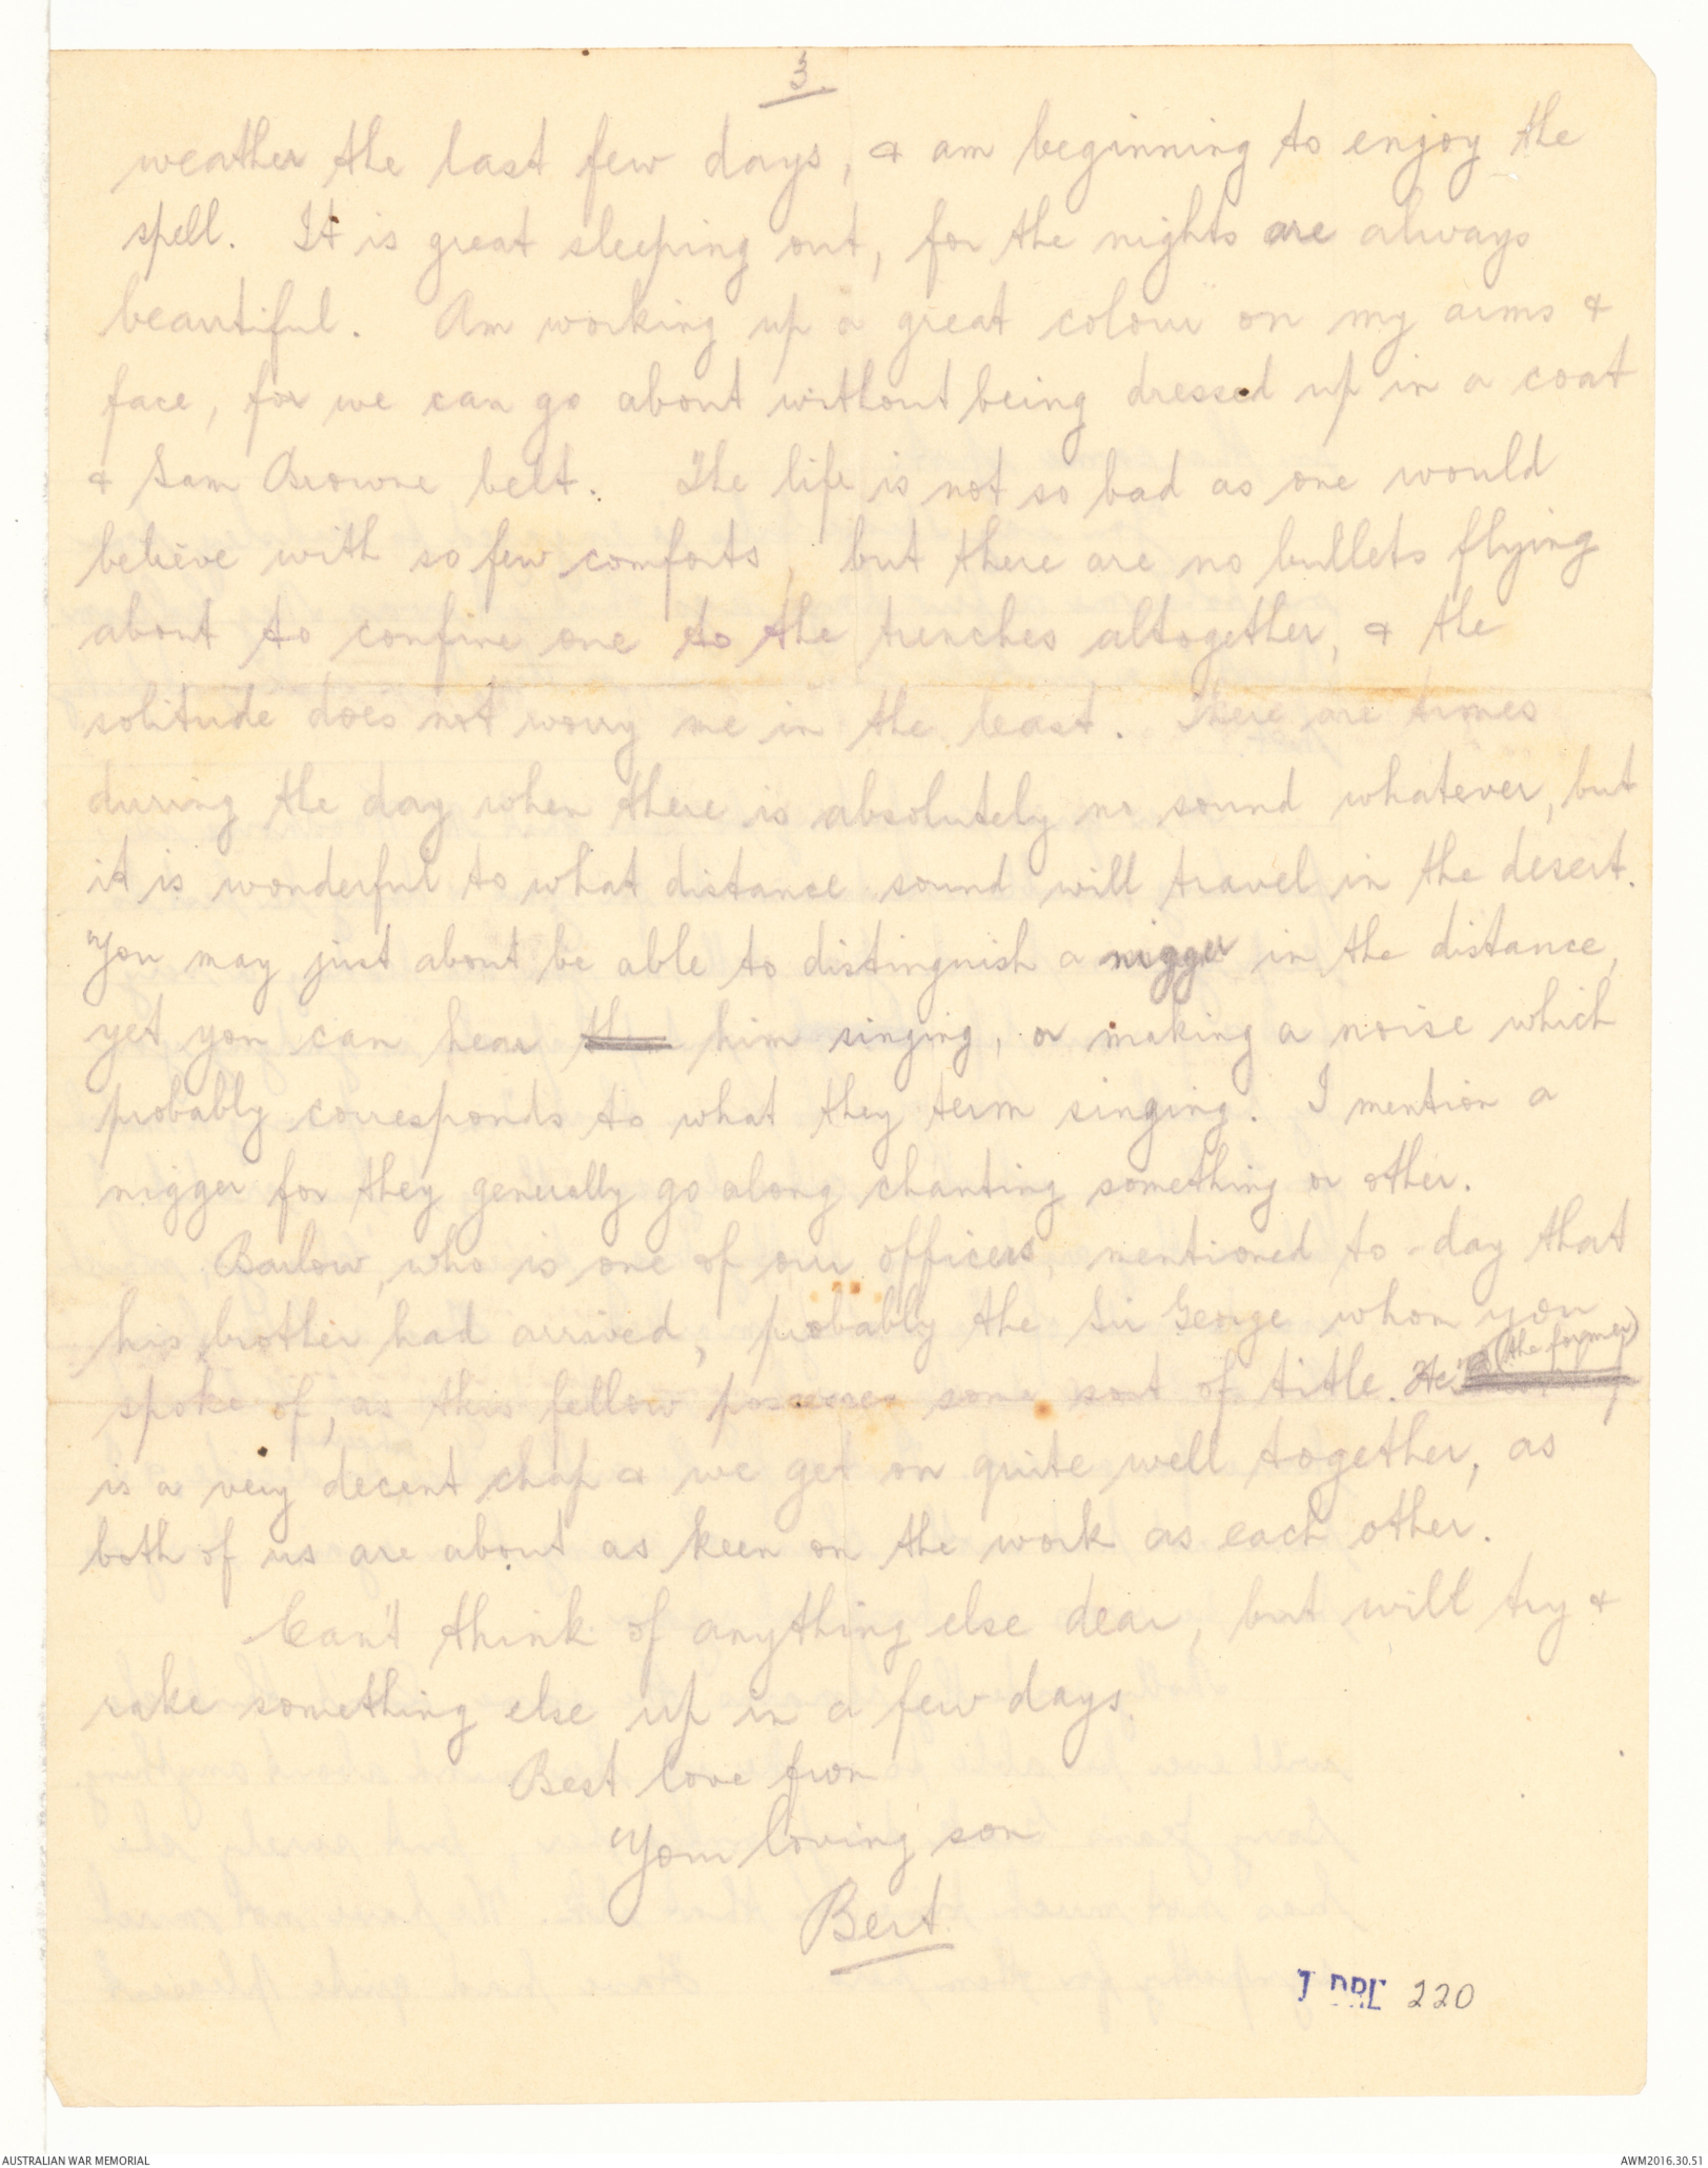 3.
weather the last few days, & am beginning to enjoy the
spell. It is great sleeping out, for the nights are always
beautiful. Am working up a great colour on my arms &
face, for we can go about without being dressed up in a coat
& Sam Browne belt. The life is not so bad as one would
believe with so few comforts, but there are no bullets flying
about to confine one to the trenches altogether, & the
solitude does not worry me in the least. There are times
during the day when there is absolutely no sound whatever, but
it is wonderful to what distance sound will travel in the desert.
You may just about be able to distinguish a nigger in the distance,
yet you can hear him singing, or making a noise which
probably corresponds to what they term singing. I mention a
nigger for they generally go along chanting something or other.
Barlow, who is one of our officers, mentioned to-day that
his brother had arrived, probably the Sir George whom you
spoke of, as this fellow possesses some sort of title. He (the former)
is a very decent chap & we get on quite well together, as
both of us are about as keen on the work as each other.
Can't think of anything else dear, but will try &
rake something else up in a few days.
Best love from
Your loving son
Bert.
1 DRL 220
AUSTRALIAN WAR MEMORIAL
AWM2016.30.51